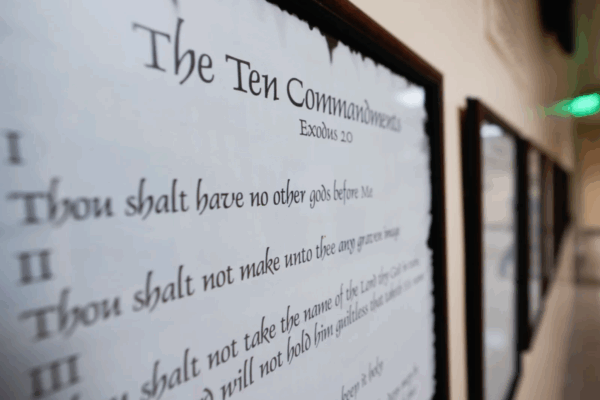 The Ten Commandments
Exodus 20
I
Thou shalt have no other gods before Me
II
Thou shalt not make unto thee any graven image
III
shalt not take the name of the Lord thy God in
will not hold him guiltless that
keep it holy